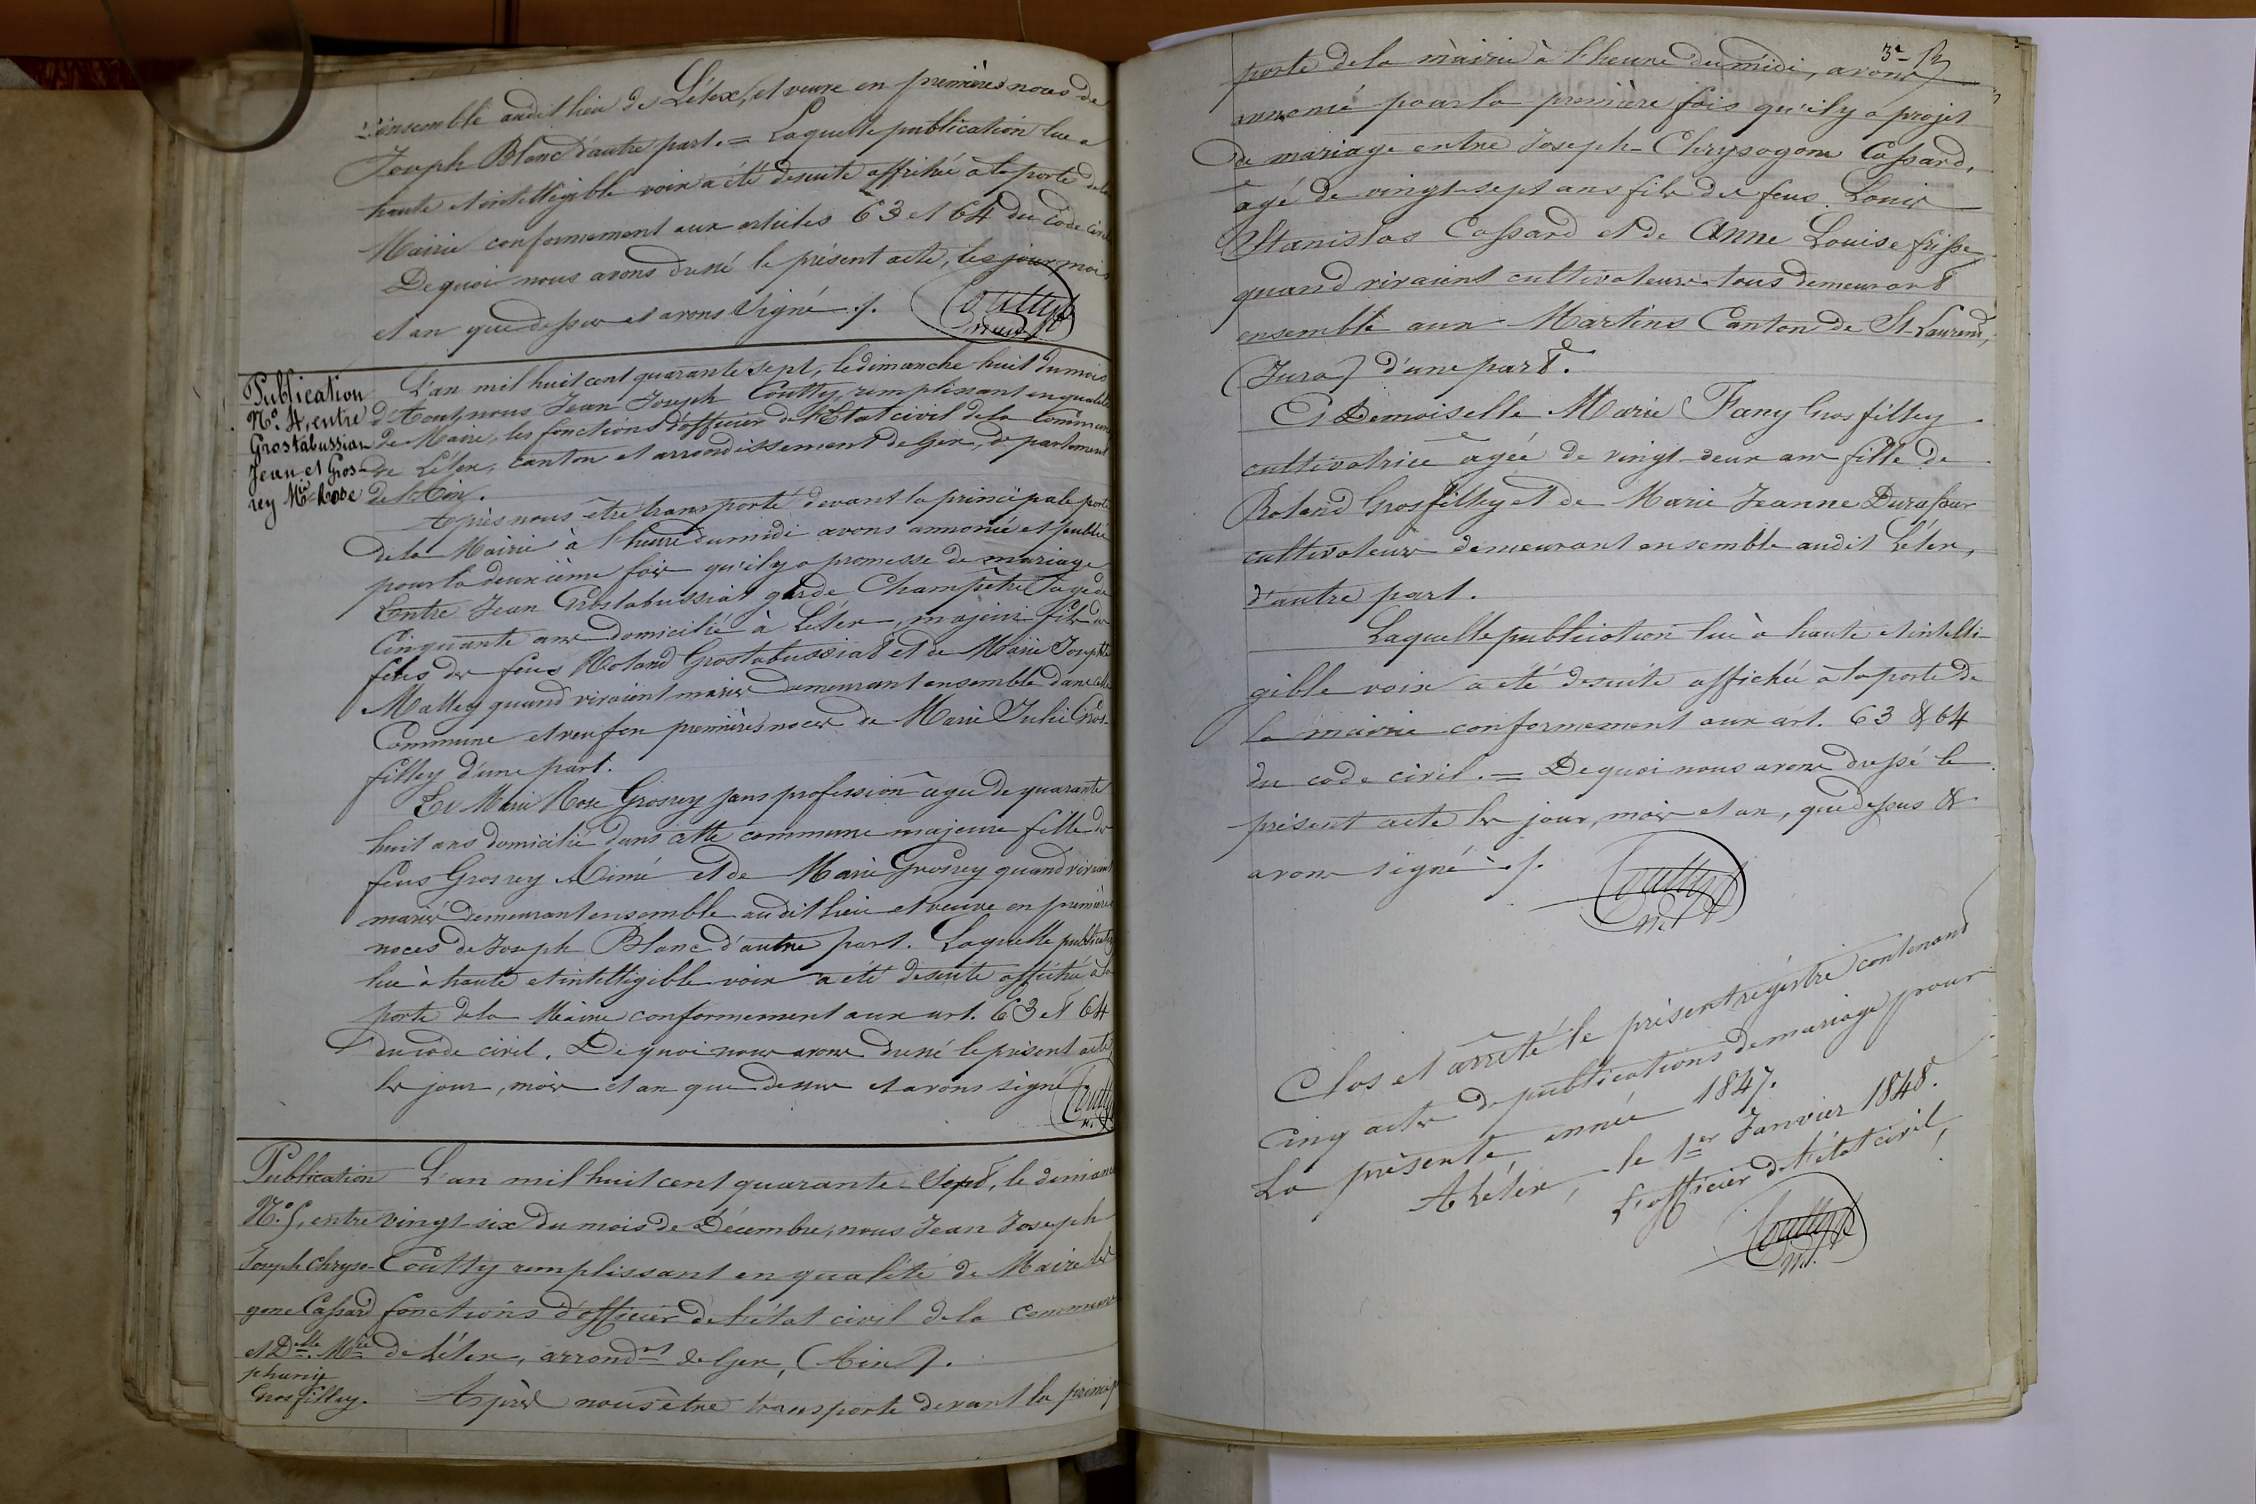 ensemble audit lieu de Lélex, et veuve en premières noces de
Joseph Blanc d'autre part. = Laquelle publication lue a
haute et intelligible voix a été desuite affichée à la porte de la
Mairie conformement aux articles 63 et 64 du Code Civil
De quoi nous avons dressé le présent acte, les jour, mois
et an que dessus et avons signé ./.
Coutty
Publication
N.° 4, entre
Grostabussiat
Jean et Gros-
rey Mie Rose
L'an mil huit cent quarante sept, le dimanche huit du mois
d'Aout, nous Jean Joseph Coutty, remplissant en qualité
de Maire, les fonctions d'officier de l'Etat civil de la Commune
de Lélex, canton et arrondissement de Gex, département
de l'Ain.
Après nous être transporté devant la principale porte
de la Mairie à l'heure du midi avons annoncé et publié
pour la deuxième fois qu'il y a promesse de mariage
Entre Jean Grostabussiat garde Champêtre agé de
Cinquante ans domicilié à Lélex, majeur fils de
feus Roland Grostabussiat et de Marie Josephte
Mattey quand vivaient mariés demeurant ensemble dans cette
Commune et veuf en premières noces de Marie Julie Gros-
filley d'une part.
Et Marie Rose Grosrey sans profession agée de quarante
huit ans domicilié dans cette commune majeure fille de
feus Grosrey Aimé et de Marie Grosrey quand vivaient
mariés demeurant ensemble audit lieu et veuve en premières
noces de Joseph Blanc d'autre part. Laquelle publication
lue à haute et intelligible voix a été desuite affichée à la
porte de la Mairie conformement aux art. 63 et 64
du code civil. De quoi nous avons dressé le présent acte
les jour, mois et an que dessus et avons signé
Coutty
Publication
N.° 5, entre
Joseph Chryso-
gone Cassard
et Delle Mie
phanie
Grosfilley.
L'an mil huit cent quarante-Sept, le dimanche
vingt-six du mois de Décembre, nous Jean Joseph
Coutty remplissant en qualité de Maire les
fonctions d'officier de l'état civil de la commune
de Lélex, arrondt de Gex, (Ain).
Après nous être transporté devant la principale
3e
porte de la mairie à l'heure du midi, avons
annoncé pour la première fois qu'il y a projet
de mariage entre Joseph-Chrysogone Cassard,
âgé de vingt-sept ans fils de feus Louis
Stanislas Cassard et de Anne Louise frisse
quand vivaient cultivateurs tous demeurant
ensemble aux Martins Canton de St. Laurent,
(Jura) d'une part.
Et Demoiselle Marie Fany Grosfilley
cultivatrice âgée de vingt-deux ans fille de
Roland Grosfilley et de Marie Jeanne Duraffour
cultivateurs demeurant ensemble audit Lélex,
d'autre part.
Laquelle publication lue à haute et intelli-
gible voix a été desuite affichée à la porte de
la mairie conformement aux art. 63 & 64
du code civil. = De quoi nous avons dressé le
présent acte les jour, mois et an, que dessus &
avons signé ./.
Coutty
Clos et arrêté le présent régistre contenant
Cinq actes de publications de mariage pour
La présente année 1847.
A Lélex, le 1er Janvier 1848.
L'officier de l'état civil,
Coutty